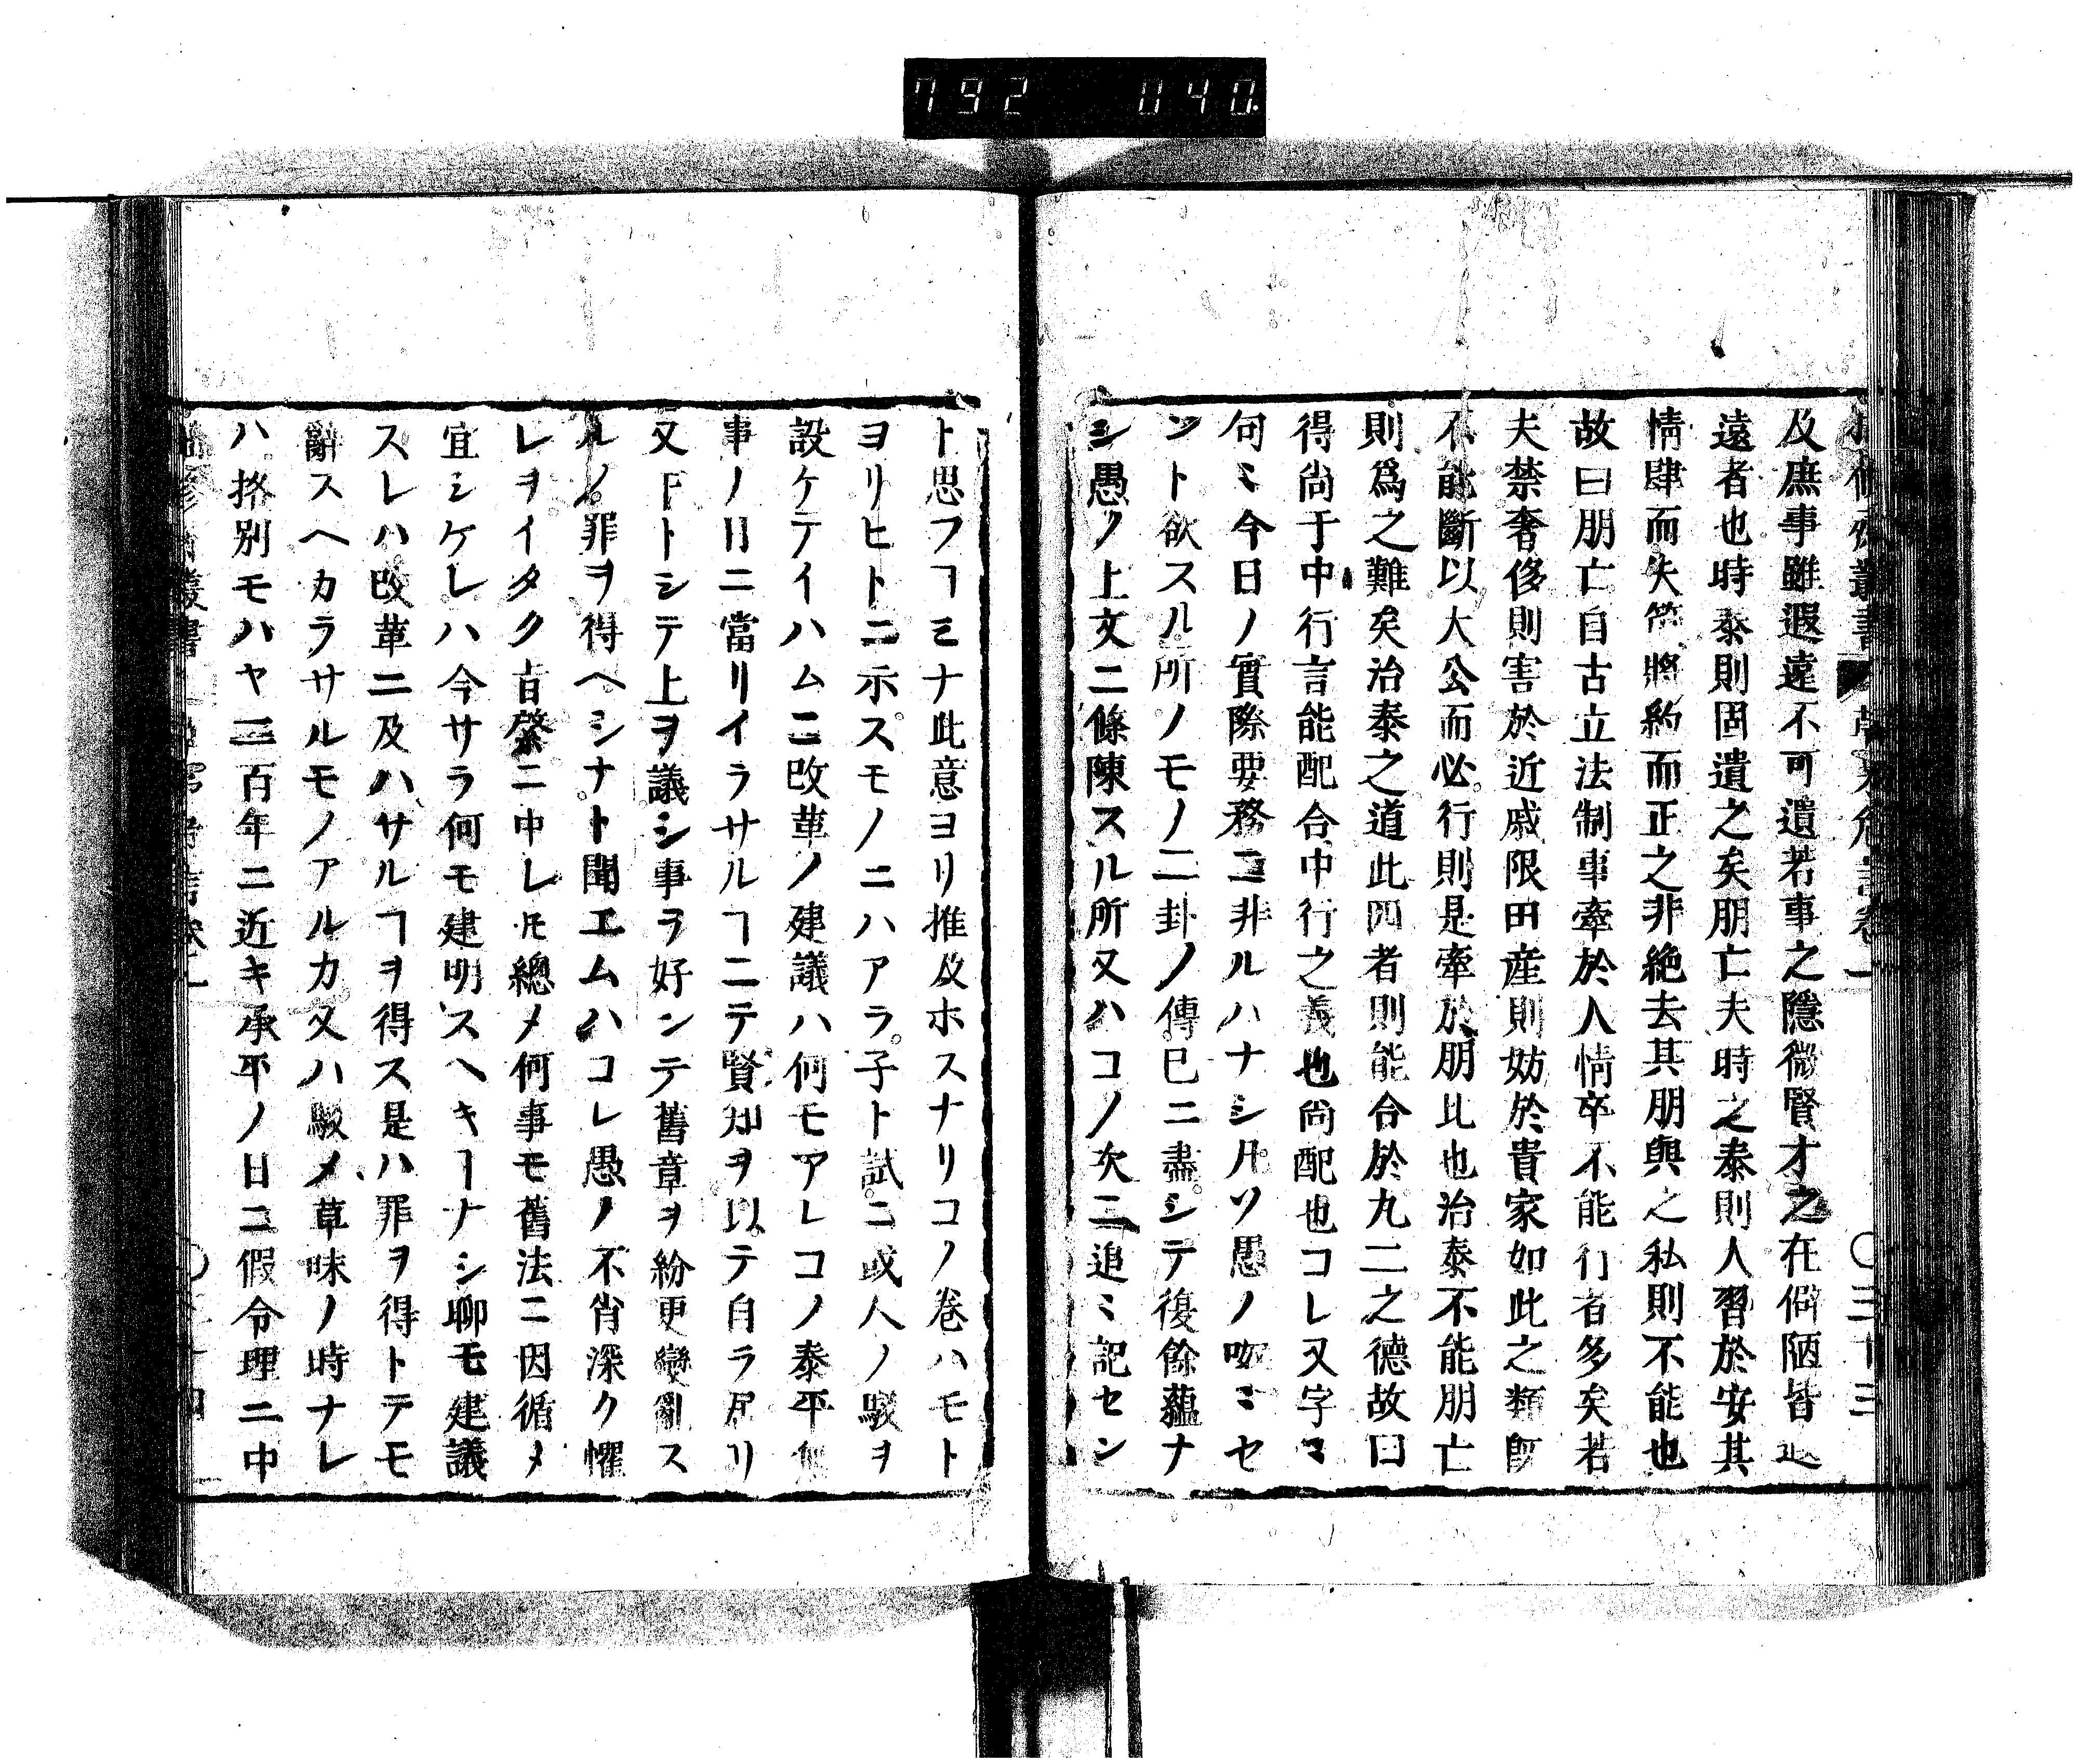 792 040
及庶事雖遐遠不可遺若事之隱微賢才之在僻陋皆遐
遠者也時泰則固遺之矣朋亡夫時之泰則人習於安其
情肆而失節將約而正之非絶去其朋與之私則不能也
故曰朋亡自古立法制事牽於人情卒不能行者多矣若
夫禁奢侈則害於近戚限田産則妨於貴家如此之類既
不能斷以大公而必行則是牽於朋比也治泰不能朋亡
則爲之難矣治泰之道此四者則能合於九二之德故曰
得尚于中行言能配合中行之義也尚配也コレ又字ミ
句ミ今日ノ實際要務ニ非ルハナシ凡ソノ愚ノ呶ミセ
ント欲スル所ノモノ二卦ノ傳巳ニ盡シテ復餘蘊ナ
シ愚ノ上文ニ條陳スル所又ハコノ次ニ追ミ記セン
ト思フヿミナ此意ヨリ推及ホスナリコノ卷ハモト
ヨリヒトニ示スモノニハアラ子ト試ニ或人ノ駁ヲ
設ケテイハムニ改革ノ建議ハ何モアレコノ泰平無
事ノ日ニ當リイラサルヿニテ賢知ヲ以テ自ラ居リ
又下トシテ上ヲ議シ事ヲ好ンテ舊章ヲ紛更變亂ス
ルノ罪ヲ得ヘシナト聞エムハコレ愚ノ不肖深ク懼
レヲイタク肯綮ニ中レ𪜈總メ何事モ舊法ニ因循メ
宜シケレハ今サラ何モ建明スヘキヿナシ聊モ建議
スレハ改革ニ及ハサルヿヲ得ス是ハ罪ヲ得トテモ
辭スヘカラサルモノアルカ又ハ駁メ草昧ノ時ナレ
ハ挌別モハヤ二百年ニ近キ承平ノ日ニ假令理ニ中